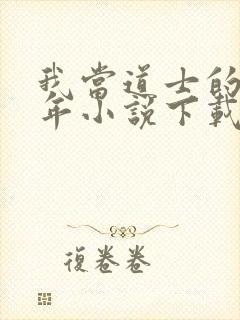 我當道士的
年小說下載
復卷卷